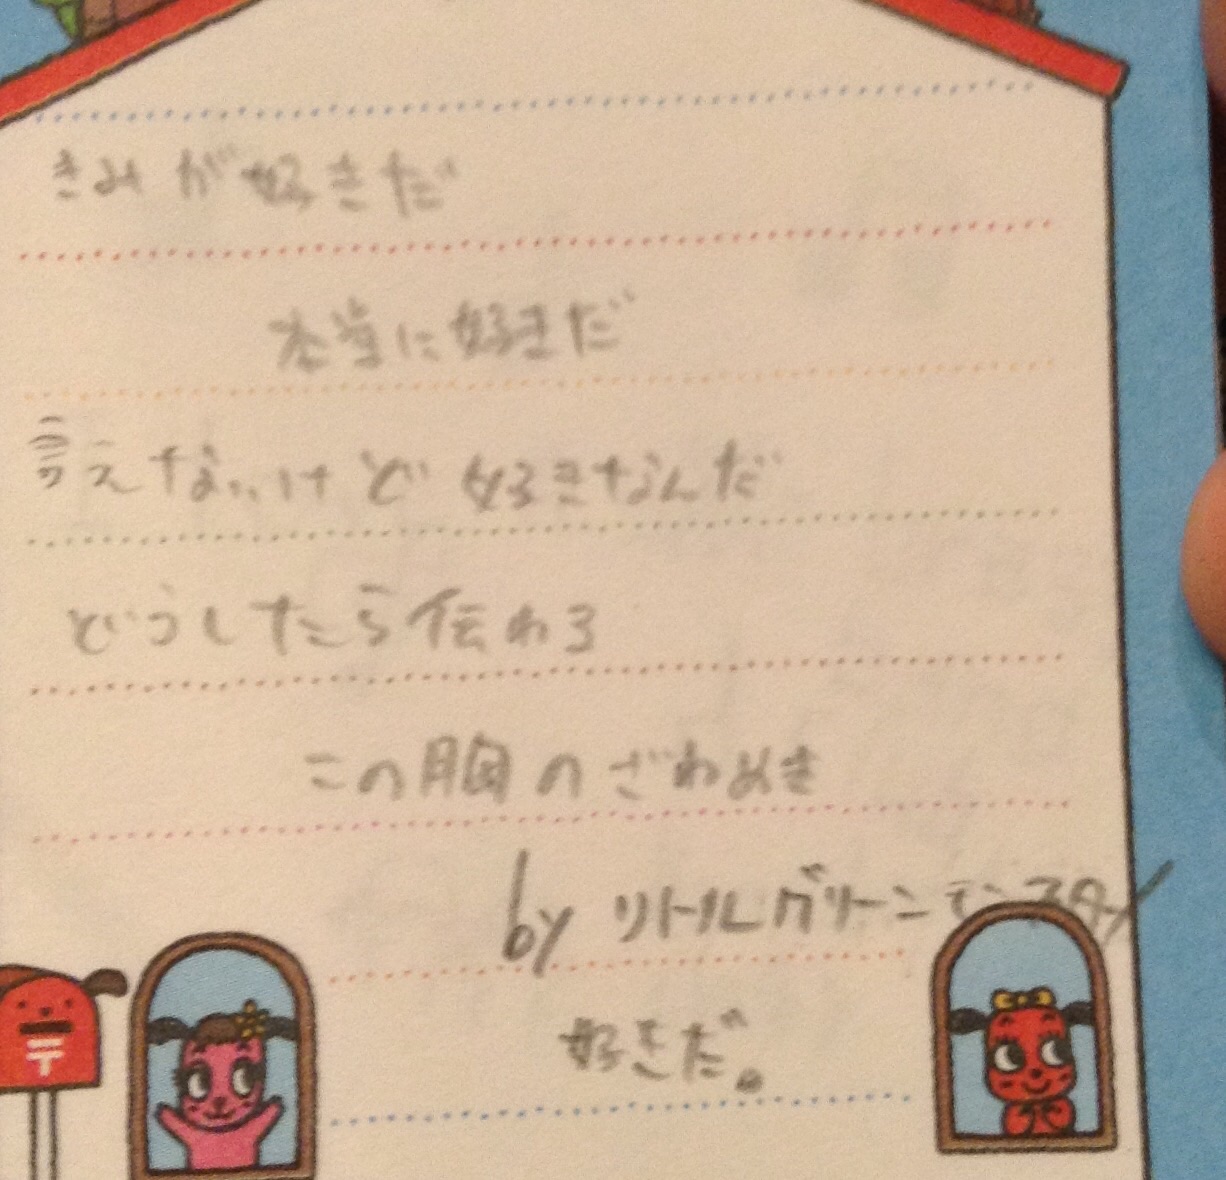 きみが好きだ
本当に好きだ
言えないけど好きなんだ
どうしたら伝わる
この胸のざわめき
by リトルグリーンモンスター
好きだ。
〒